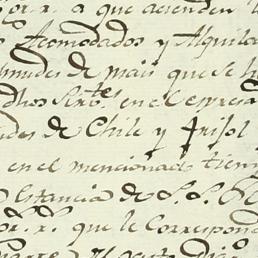 or. r. a que acienden
Acomodados y Alquila
lmudes de mais que se h
dhos Sirbtes en el espresa
des de Chile y frisol
en el mencionado tiem
Estancia de S. S.
or. r. que le Correspond